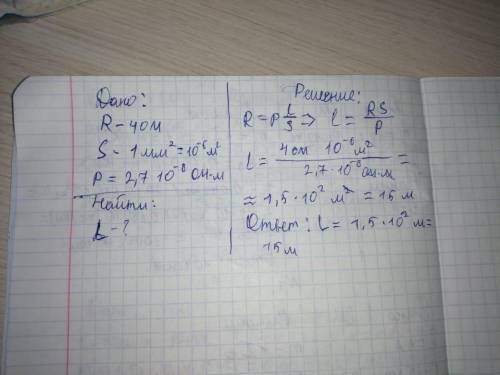 Дано:
R - 4 Ом
S - 1 мм² = 10⁻⁶ м²
P = 2,7 10⁻⁸ Ом·м
Найти:
L - ?
Решение:
R = P L/S => l = RS/P
L = 4 ом 10⁻⁶ м² / 2,7 · 10⁻⁸ Ом·м =
≈ 1,5 · 10² м² = 15 м
Ответ: L = 1,5 · 10² м =
15 м